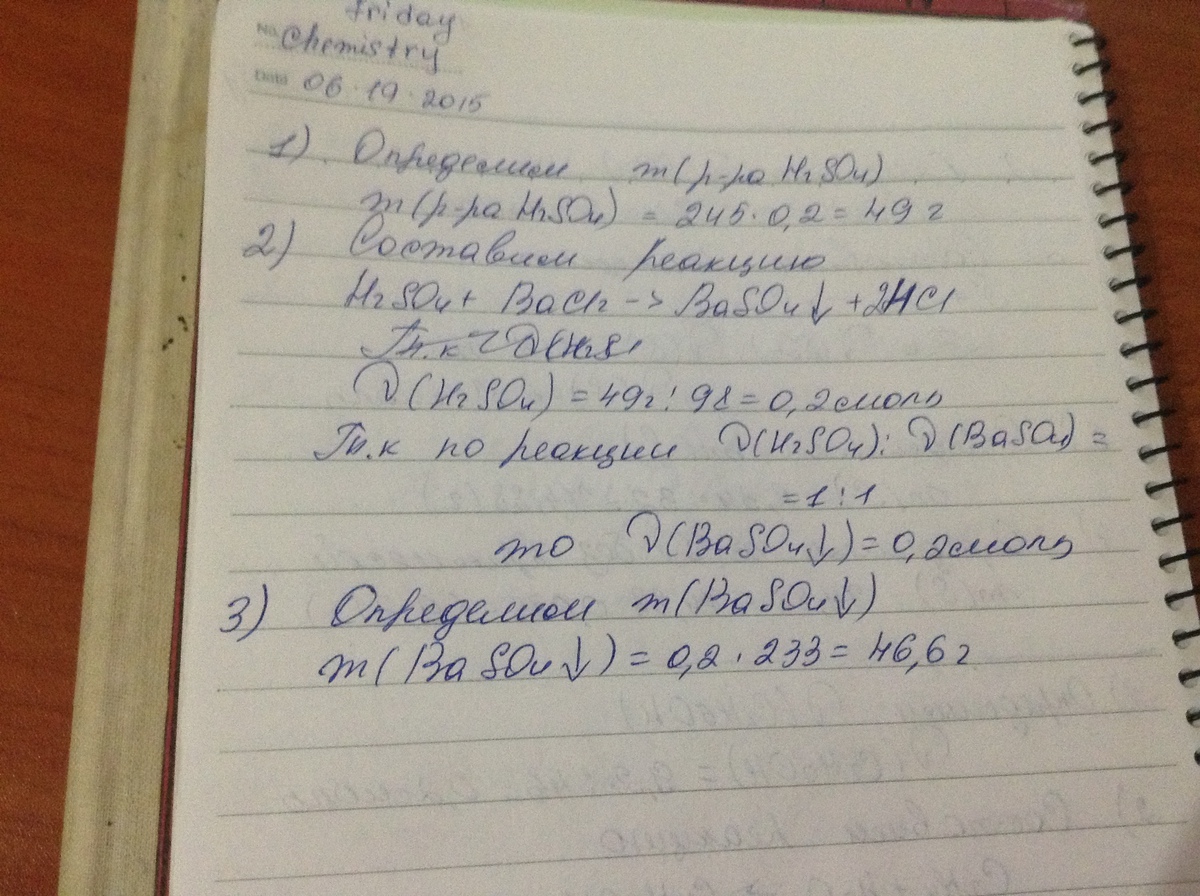 friday
No. Chemistry
Date 06.19.2015
1) Определим m(р-ра H₂SO₄)
m(р-ра H₂SO₄) = 245·0,2 = 49 г
2) Составим реакцию
H₂SO₄ + BaCl₂ -> BaSO₄↓ + 2HCl
Т.к ν(H₂S
ν(H₂SO₄) = 49г : 98 = 0,2 моль
Т.к по реакции ν(H₂SO₄) : ν(BaSO₄) =
= 1 : 1
то ν(BaSO₄↓) = 0,2 моль
3) Определим m(BaSO₄↓)
m(BaSO₄↓) = 0,2·233 = 46,6 г